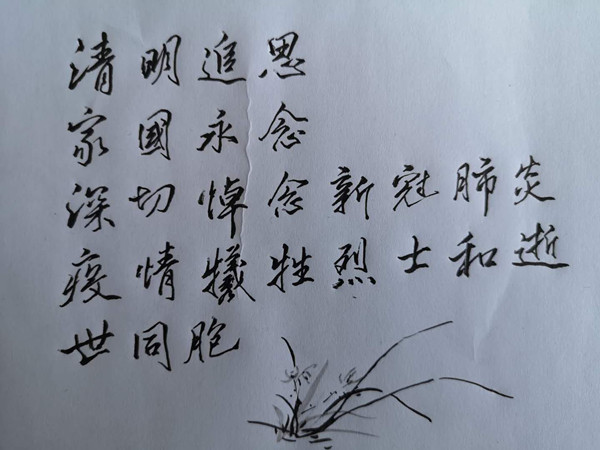 清明追思
家國永念
深切悼念新冠肺炎
疫情犠牲烈士和逝
世同胞